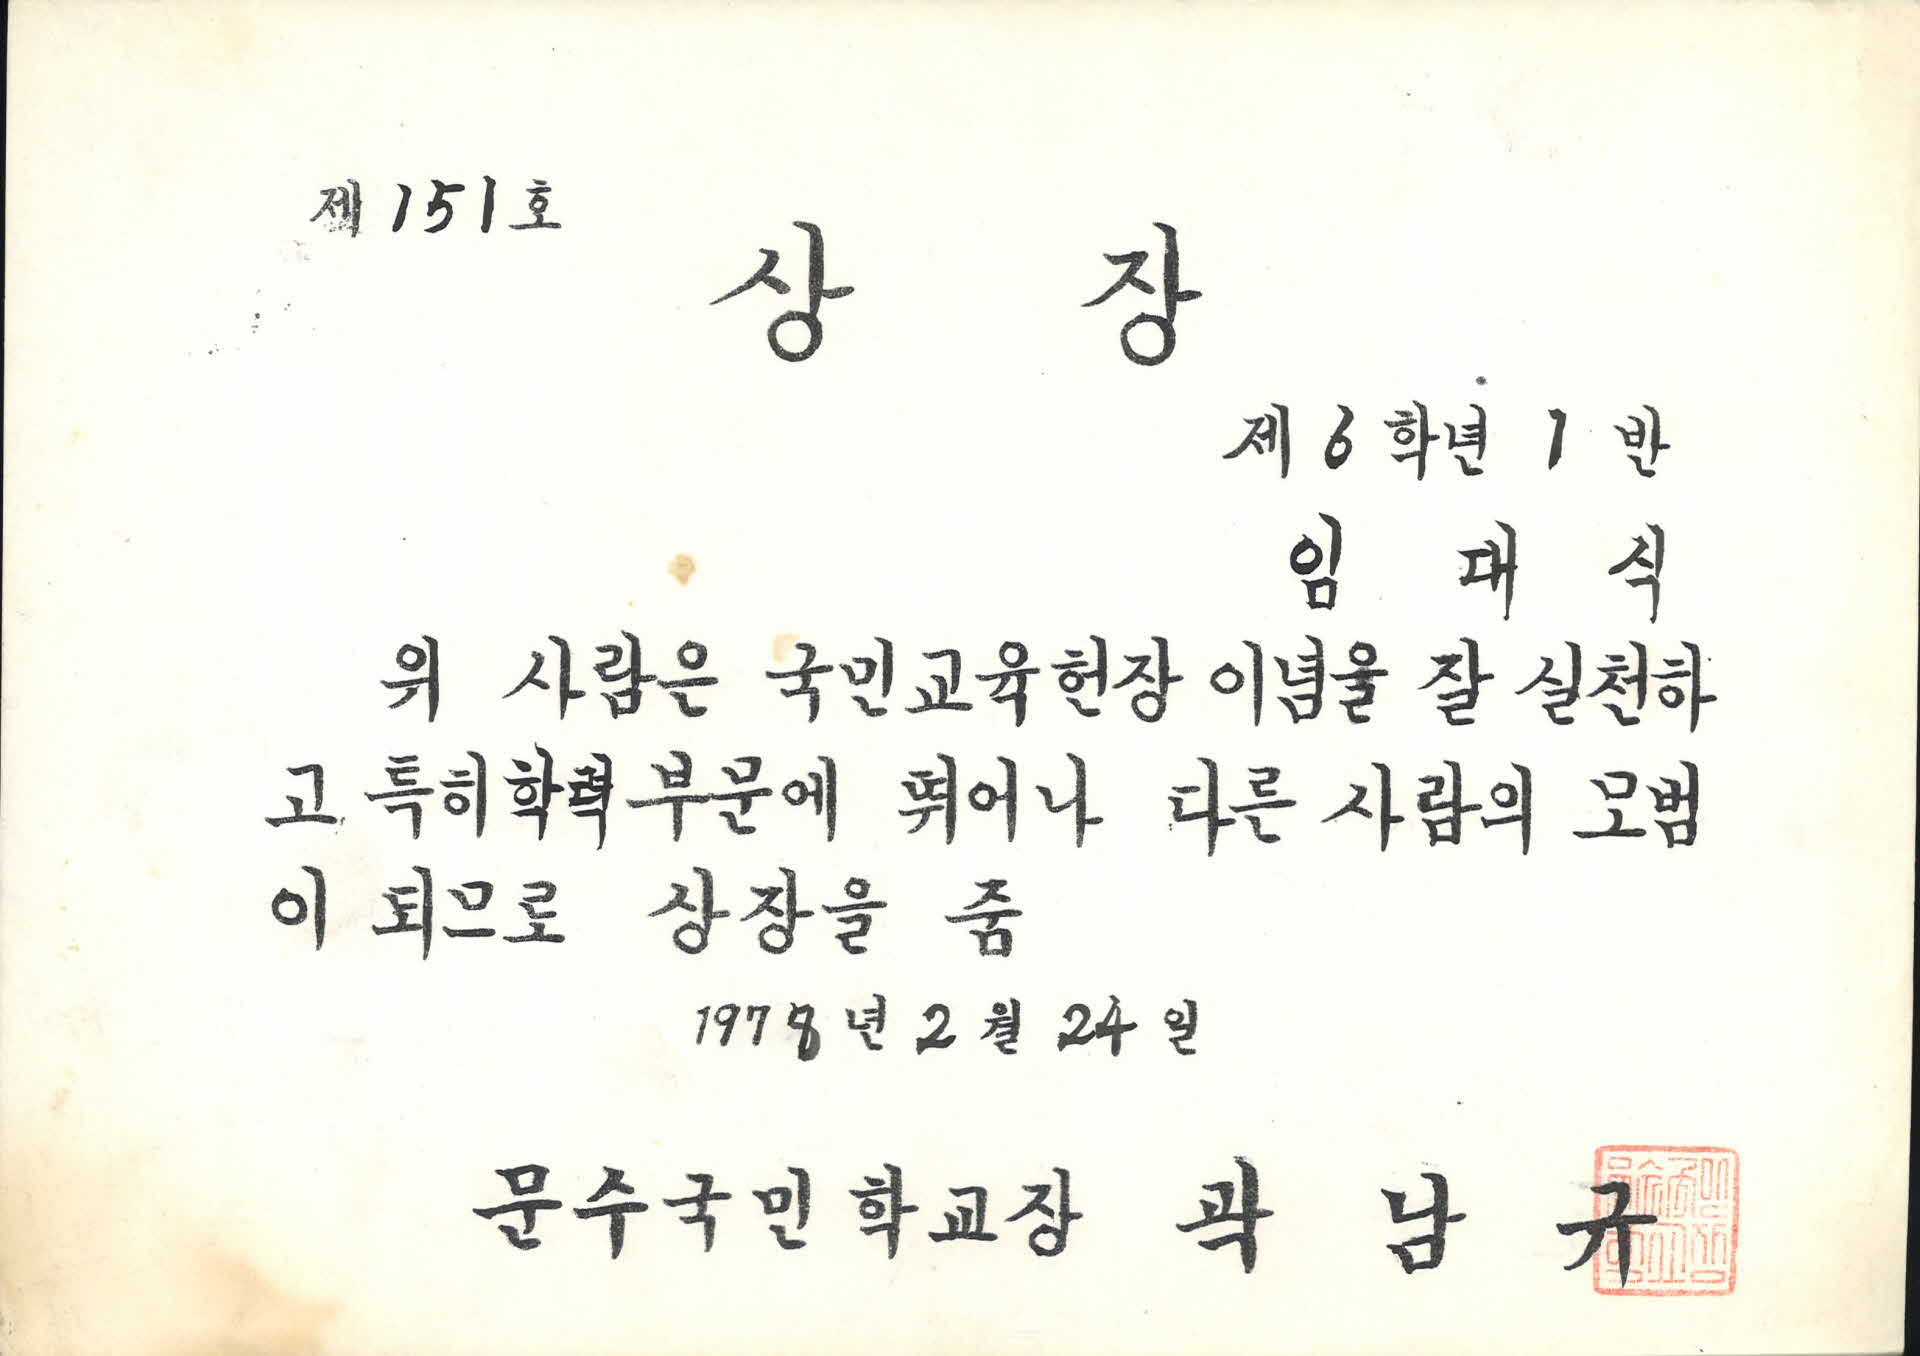 제 151 호
상 장
제 6 학년 1 반
임 대 식
위 사람은 국민교육헌장 이념울 잘 실천하
고 특히 학력 부문에 뛰어나 다른 사람의 모범
이 되므로 상장을 줌
1978년 2월 24일
문수국민학교장 곽 남 규